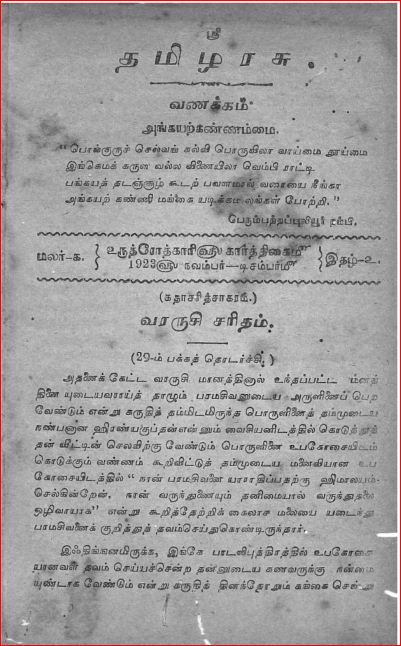 ஸ்ரீ
தமிழரசு.
வணக்கம்
அங்கயற்கண்ணம்மை.
"பொங்குருச் செல்வங் கல்வி பொருவிலா வாய்மை தூய்மை
இங்கெமக் கருள வல்ல
பங்கயத் தடஞ்சூழ் கூடற் பவளமால் வரையை நீங்கா
அங்கயற் கண்ணி மங்கை யடிக்கம லங்கள் போற்றி."
பெரும்பற்றப்புலியூர் நம்பி.
மலர்-க. } உருத்ரோத்காரிளு கார்த்திகைமீ { இதழ்-உ.
1923ளு நவம்பர்—டிசம்பர்மீ
(கதாசரித்சாகரம்.)
வரருசி சரிதம்.
(29-ம் பக்கத் தொடர்ச்சி.)
அதனைக்கேட்ட வரருசி மானத்தினால் உந்தப்பட்ட மனத்
தினை யுடையவராய்த் தாமும் பரமசிவனுடைய அருளினைப் பெற
வேண்டும் என்று கருதித் தம்மிடமிருந்த பொருளினைத் தம்முடைய
நண்பனான ஹிரண்யகுப்தன்என்னும் வைசியனிடத்தில் கொடுத்துத்
தன் வீட்டின் செலவிற்கு வேண்டும் பொருளினை உபகோசையிடம்
கொடுக்கும் வண்ணம் கூறிவிட்டுத் தம்முடைய மனைவியான உப
கோசையிடத்தில் "நான் பரமசிவனை யாராதிப்பதற்கு ஹிமாலயம்
செல்கின்றேன். நான் வருந்துணையும் தனிமையால் வருந்துதலை
ஒழிவாயாக" என்று கூறித்தேற்றிக் கைலாச மலையை யடைந்து
பரமசிவனைக் குறித்துத் தவம்செய்துகொண்டிருந்தார்.
இஃதிங்ஙனமிருக்க, இங்கே பாடலிபுத்திரத்தில் உபகோசை
யானவள் தவம் செய்யச்சென்ற தன்னுடைய கணவருக்கு நன்மை
யுண்டாக வேண்டும் என்று கருதித் தினந்தோறும் கங்கை சென்று